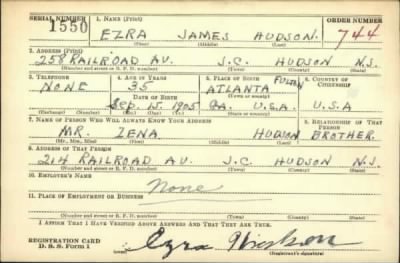 SERIAL NUMBER 1. NAME (Print) ORDER NUMBER
1550 EZRA JAMES HUDSON. 744
(First) (Middle) (Last)
2. ADDRESS (Print)
258 RAILROAD AV. J.C. HUDSON N.J.
(Number and street or R. F. D. number) (Town) (County) (State)
3. TELEPHONE 4. AGE IN YEARS 5. PLACE OF BIRTH 6. COUNTRY OF CITIZENSHIP
NONE 35 ATLANTA FULTON
DATE OF BIRTH
SEP. 15. 1905 GA. U.S.A. U.S.A
(Exchange) (Number) (Mo.) (Day) (Yr.) (State or country)
7. NAME OF PERSON WHO WILL ALWAYS KNOW YOUR ADDRESS 8. RELATIONSHIP OF THAT PERSON
MR. ZENA HUDSON BROTHER.
(Mr., Mrs., Miss) (First) (Middle) (Last)
9. ADDRESS OF THAT PERSON
214 RAILROAD AU. J.C. HUDSON N.J.
(Number and street or R. F. D. number) (Town) (County) (State)
10. EMPLOYER'S NAME
None
11. PLACE OF EMPLOYMENT OR BUSINESS
(Number and street or R. F. D. number) (Town) (County) (State)
I AFFIRM THAT I HAVE VERIFIED ABOVE ANSWERS AND THAT THEY ARE TRUE.
REGISTRATION CARD
D. S. S. Form 1 Ezra Hudson
(Registrant's signature)